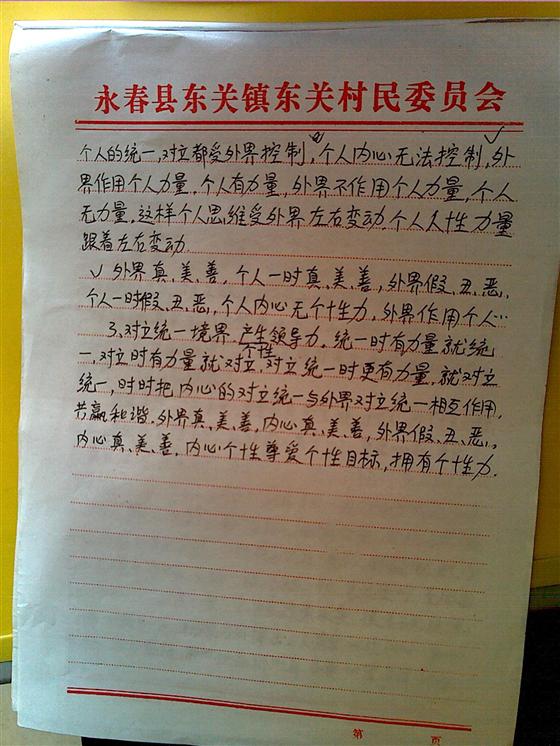 永春县东关镇东关村民委员会
个人的统一,对立都受外界控制,个人内心无法控制,外
界作用个人力量,个人有力量,外界不作用个人力量,个人
无力量,这样个人思维受外界左右变动.个人个性力量
跟着左右变动.
√外界真、美、善,个人一时真、美、善,外界假、丑、恶、
个人一时假、丑、恶,个人内心无个性力,外界作用个人…
3、对立统一境界.产生个性领导力.统一时有力量就统
一,对立时有力量就对立,对立统一时更有力量,就对立
统一,时时把内心的对立统一与外界对立统一相互作用,
共赢和谐.外界真、美、善,内心真、美、善,外界假、丑、恶、,
内心真、美、善.内心个性尊爱个性目标,拥有个性力.
第 页